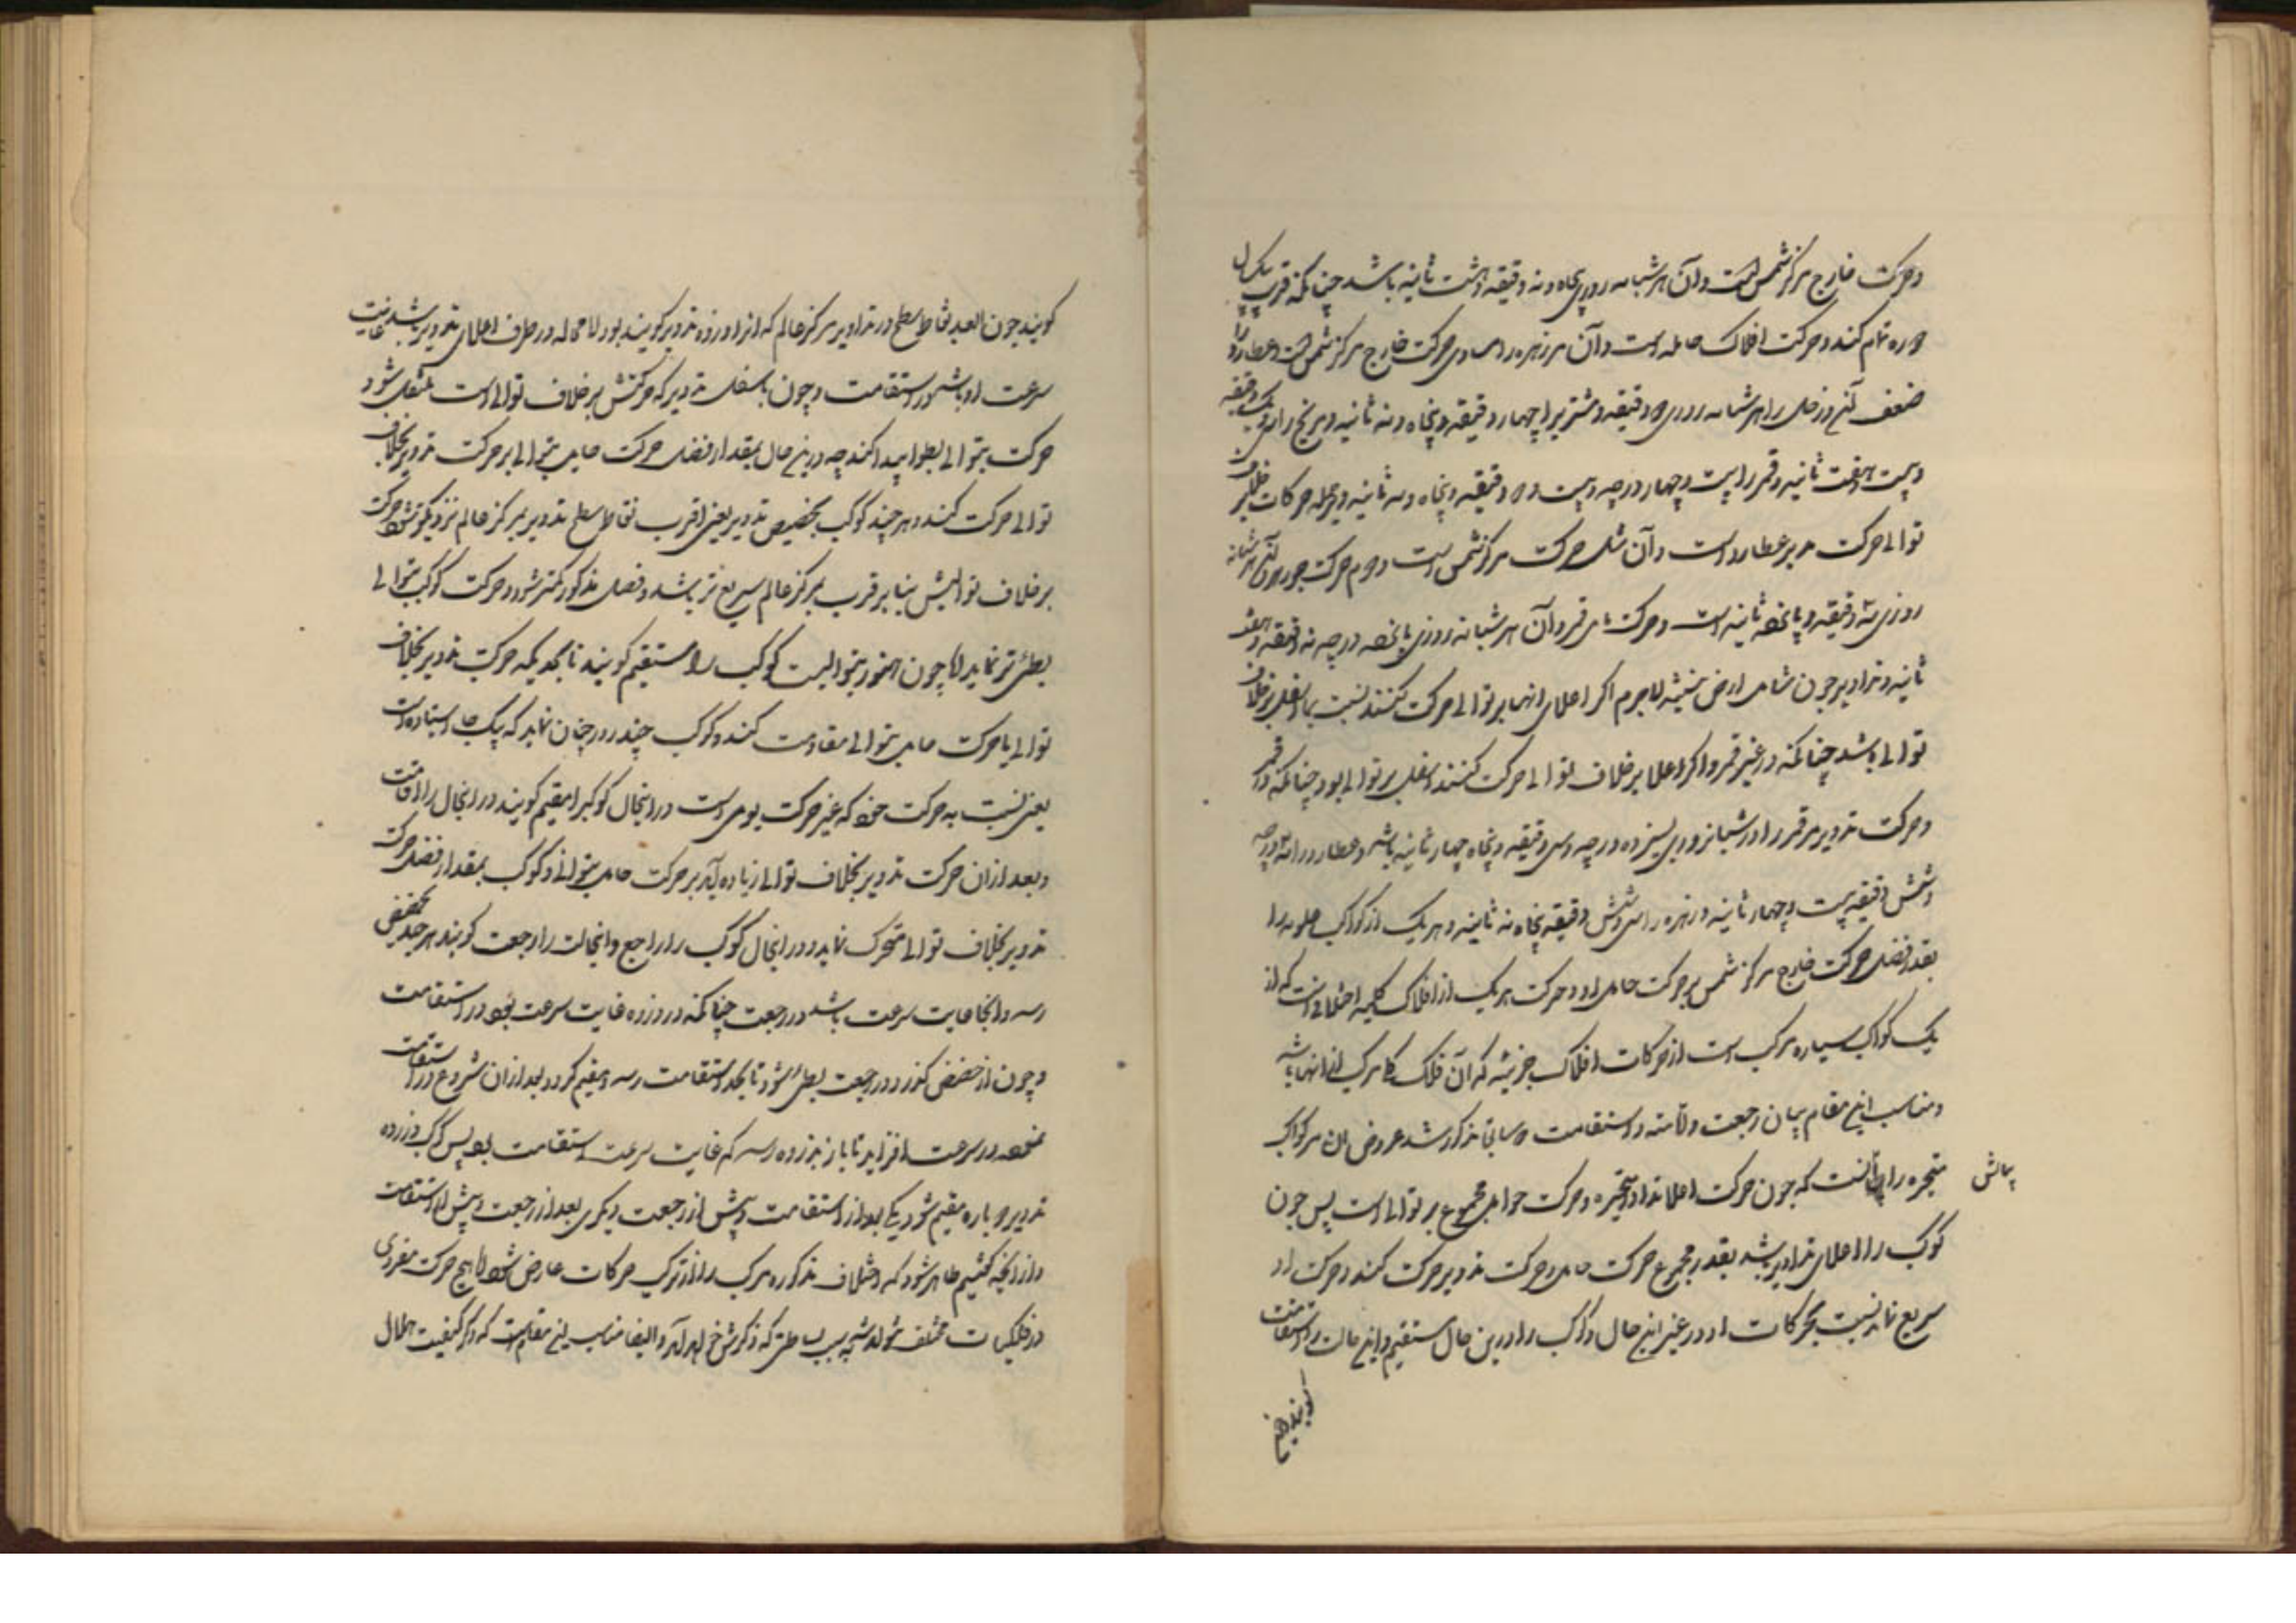 وحرکت خارج مرکز شمس است وآن هر شبانه روزی پنجاه ونه دقیقه وهشت ثانیه باشد چنانکه قرب یکسال
دوره تمام کند وحرکت افلاک حامله است وآن هر زهره را مساوی حرکت خارج مرکز شمس است وعطارد را
ضعف آن وزحل را هر شبانه روزی دو دقیقه ومشتری را چهار دقیقه وپنجاه ونه ثانیه ومریخ را سی ویک دقیقه
وبیست وهفت ثانیه وقمر را بیست وچهار درجه وبیست ودو دقیقه وپنجاه وسه ثانیه وجمله حرکات بر خلاف
توالی حرکت مدیر عطارد است وآن مثل حرکت مرکز شمس است ودوم حرکت جوزهر وآن هر شبانه
روزی سه دقیقه ویازده ثانیه است وحرکت مایل قمر وآن هر شبانه روزی یازده درجه نه دقیقه وهفت
ثانیه وتداویر چون شامل ارض نیستند لاجرم اگر اعلای انها بر توالی حرکت کنند نسبت بما اسفل بر خلاف
توالی باشد چنانکه در غیر قمر واگر اعلا بر خلاف توالی حرکت کنند اسفل بر توالی بود چنانکه در قمر
وحرکت تدویر مر قمر را در شبانروزی سیزده درجه وسی دقیقه وپنجاه چهار ثانیه باشد وعطارد را سه درجه
وشش دقیقه بیست وچهار ثانیه وزهره را سی وشش دقیقه پنجاه نه ثانیه وهریک از کواکب علویه را
بقدر فضل حرکت خارج مرکز شمس بر حرکت حامل او وحرکت هر یک از افلاک کلیه اختلافی است که از
یک کواکب سیاره مرکب است از حرکات افلاک جزئیه که آن فلک کلی مرکب از انها باشد
ومناسب این مقام بیان رجعت واقامت واستقامت که سابقا مذکور شد عروض ان مر کواکب
متحیره را بیانش آنست که چون حرکت اعلا تداویر متحیره وحرکت حوامل مجموع بر توالی است پس چون
کوکب را در اعلای تداویر باشد بقدر مجموع حرکت حامل وحرکت تدویر حرکت کند وحرکت او
سریع نماید نسبت بحرکات او در غیر این حال وکوکب را در این حال مستقیم واین حالت را استقامت
گویند
گویند چون ابعد نقاط سطح در تداویر مرکز عالم که انرا ذروه تدویر گویند بود لا محاله در طرف اعلای تدویر باشد غایت
سرعت او باشد در استقامت وچون باسفل تدویر که حرکتش بر خلاف توالی است منتقل شود
حرکت بتوالی بطؤ پیدا کند چه درین حال بمقدار فضل حرکت حامل بتوالی بر حرکت تدویر بخلاف
توالی حرکت کند وهر چند کوکب بحضیض تدویر یعنی اقرب نقاط سطح تدویر بمرکز عالم نزدیکتر شود حرکت
بر خلاف توالیش بنا بر قرب بمرکز عالم سریع تر باشد وفضل مذکور کمتر شود وحرکت کوکب بتوالی
بطئ تر نماید اما چون هنوز بتوالیست کوکب را مستقیم گویند تا بحدیکه حرکت تدویر بخلاف
توالی با حرکت حامل بتوالی مقاومت کند وکوکب چند روز چنان نماید که یکجا استاده است
یعنی نسبت به حرکت خود که غیر حرکت یومی است در اینحال کوکب را مقیم گویند ودر اینحال را اقامت
وبعد از ان حرکت تدویر بخلاف توالی زیاده آید بر حرکت حامل بتوالی وکوکب بمقدار فضل حرکت
تدویر بخلاف توالی متحرک نماید ودر اینحال کوکب را راجع واینحالت را رجعت گویند هر چند بحضیض
رسد وانجا غایت سرعت باشد در رجعت چنانکه در ذروه غایت سرعت بود در استقامت
وچون از حضیض گذرد در رجعت بطئ شود تا بحد استقامت رسد ومقیم گردد بعد از ان شروع در استقامت
نموده در سرعت افزاید تا باز بذروه رسد که غایت سرعت استقامت بود پس کوکب در زوره
تدویر دوباره مقیم شود یکی بعد از استقامت وپیش از رجعت ودیگری بعد از رجعت وپیش از استقامت
واز آنچه گفتیم ظاهر شود که اختلاف مذکوره مرکب را از ترکیب حرکات عارض شود والا هیچ حرکت مفردی
در فلکیات مختلف نتواند شد به سبب بساطتی که ذکرش خواهد آمد وایضا مناسب این مقام است که ذکر کیفیت هلال